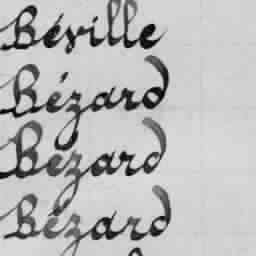 Béville
Bézard
Bezard
Bézard